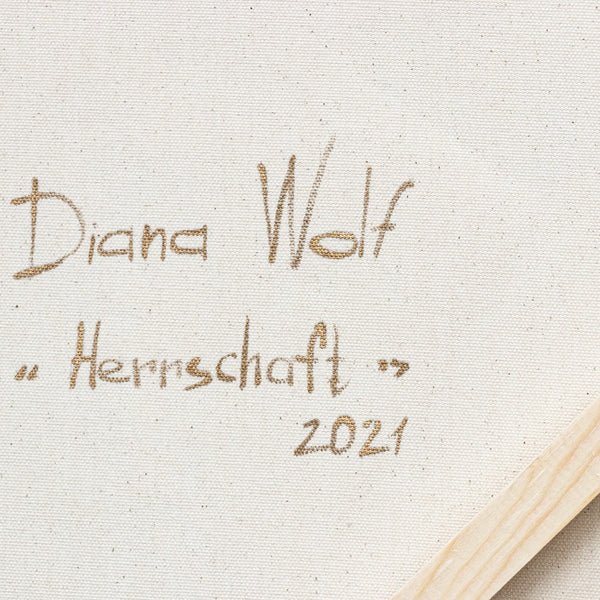 Diana Wolf
„Herrschaft”
2021